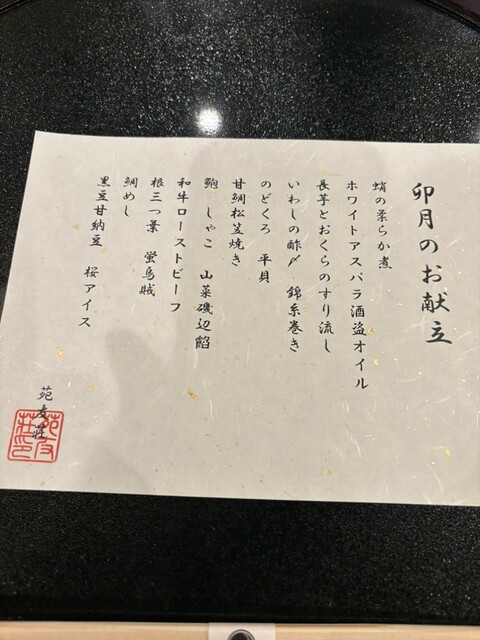 卯月のお献立
蛸の柔らか煮
ホワイトアスパラ酒盗オイル
長芋とおくらのすり流し
いわしの酢〆　錦糸巻き
のどくろ　平貝
甘鯛松笠焼き
鮑　しゃこ　山菜磯辺餡
和牛ローストビーフ
根三つ葉　蛍烏賊
鯛めし
黒豆甘納豆　桜アイス
苑友荘